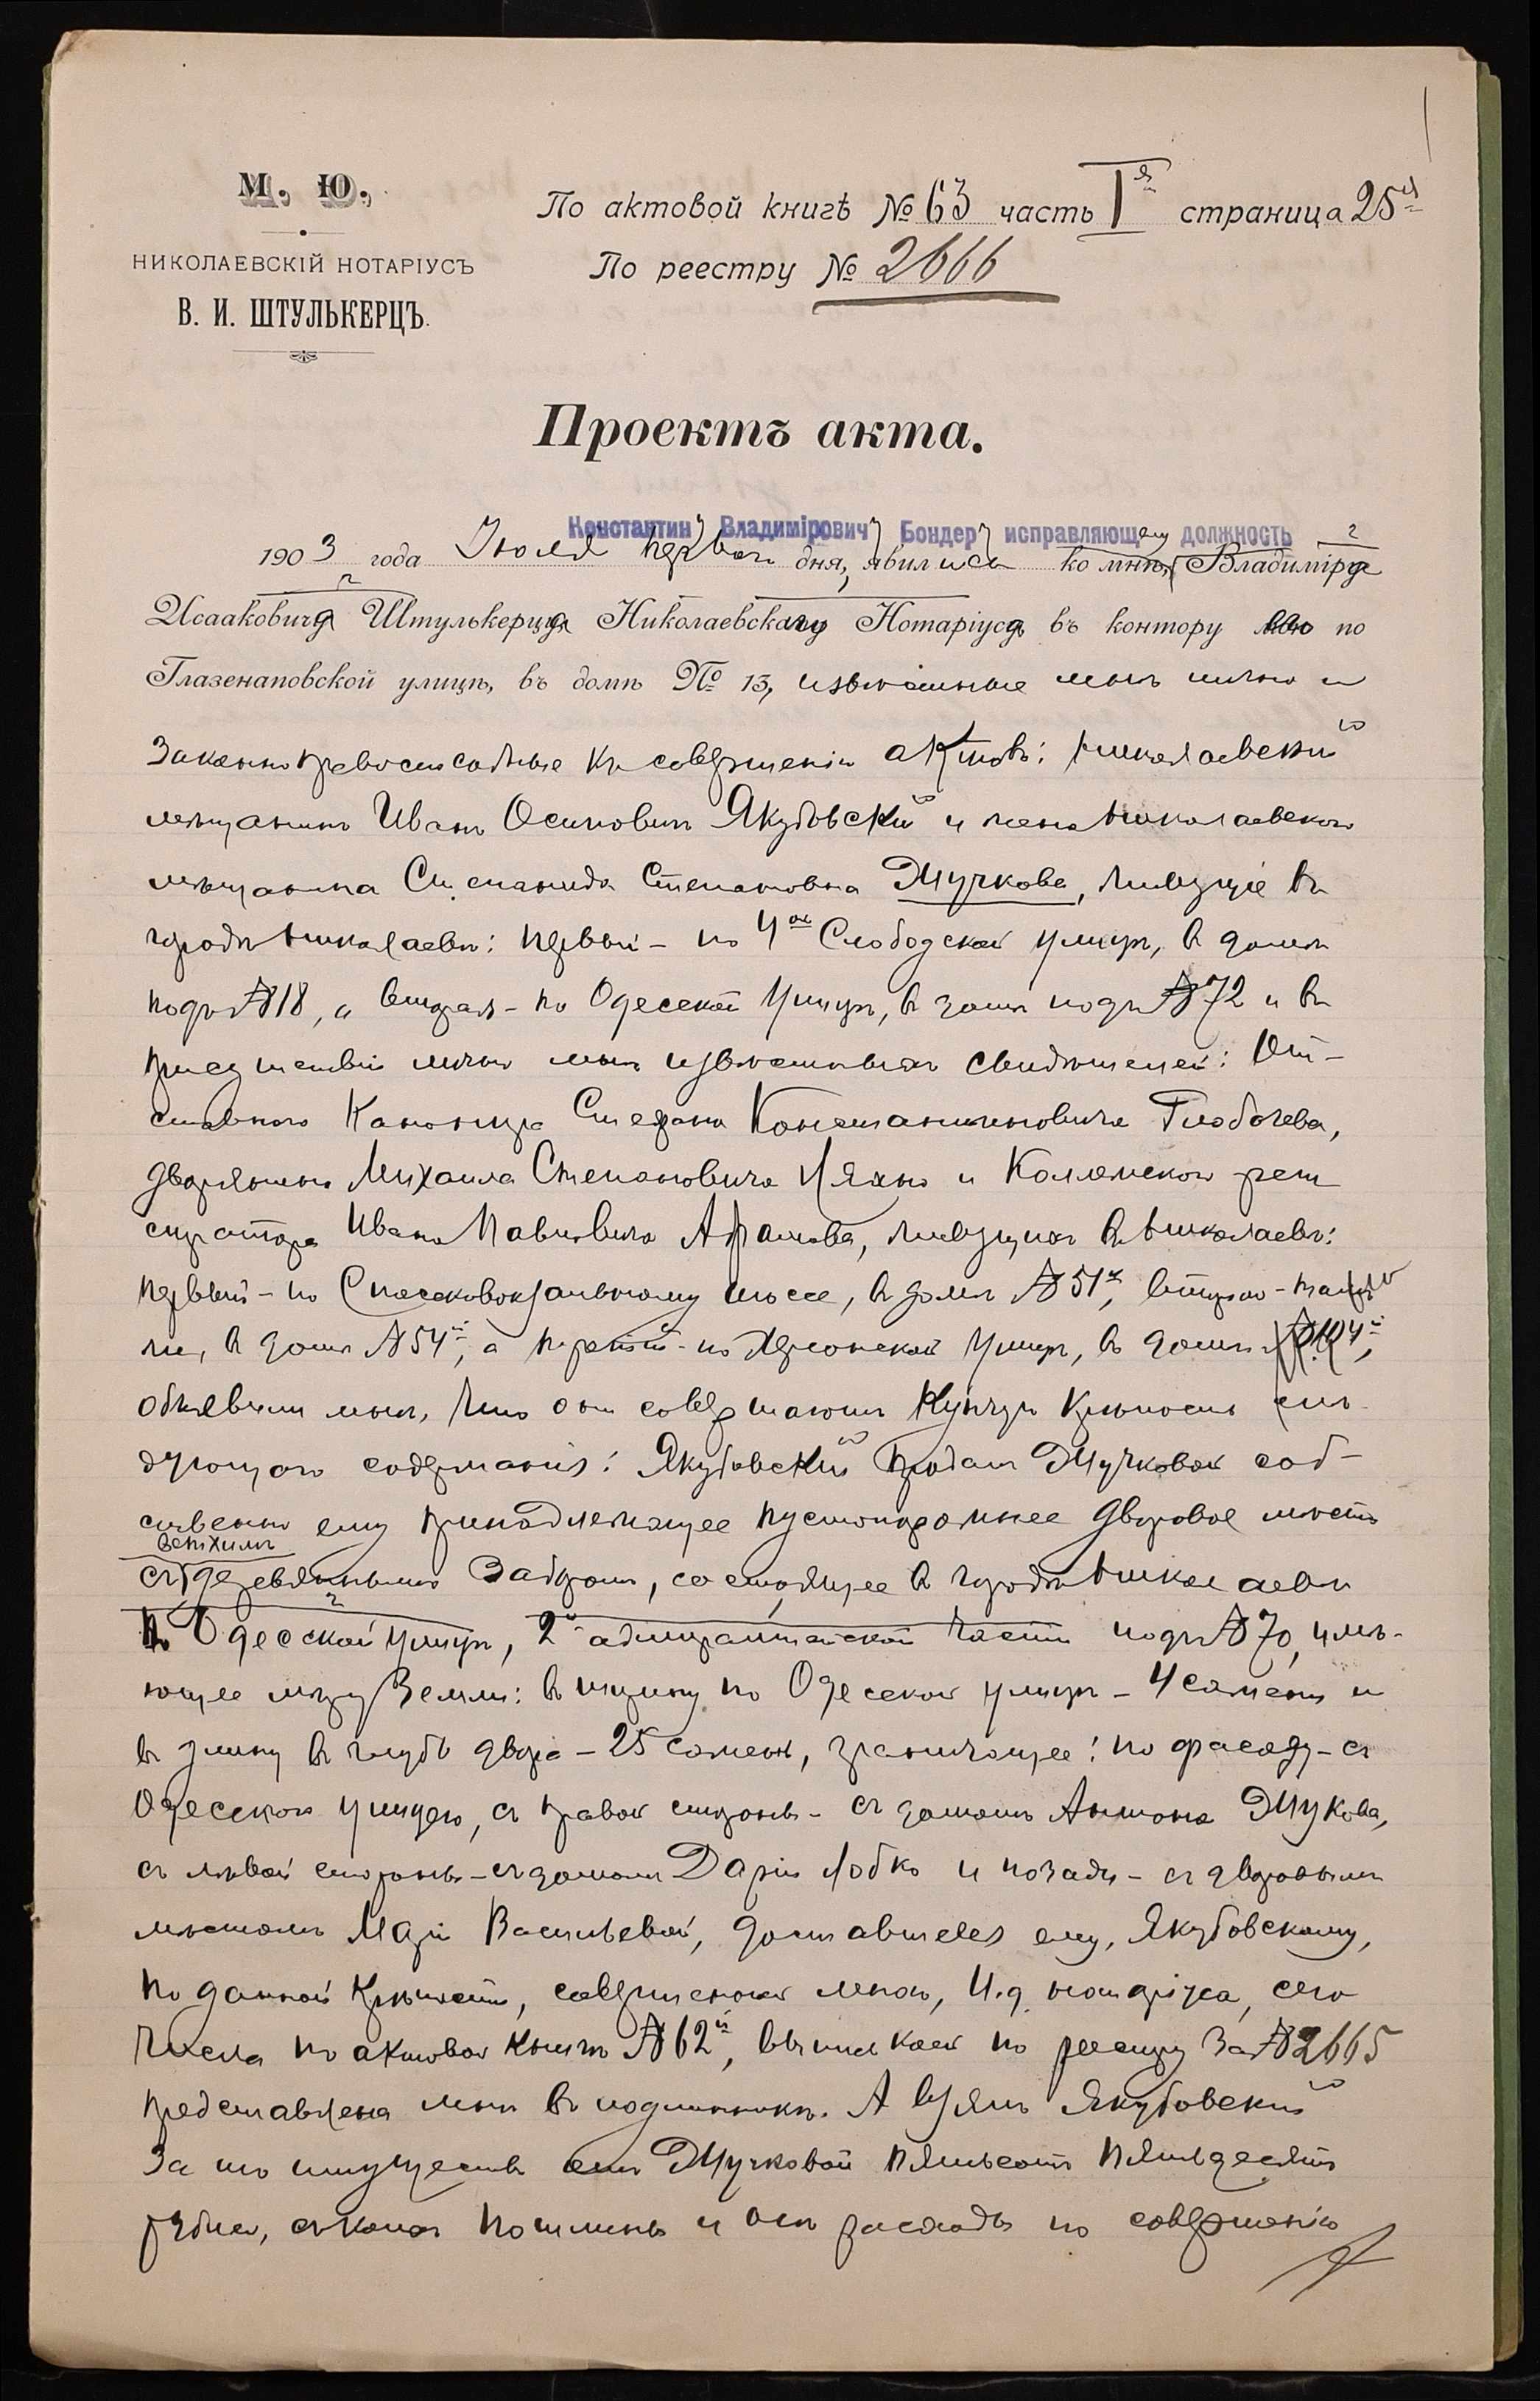 М. Ю.
НИКОЛАЕВСКІЙ НОТАРІУСЪ
В. И. ШТУЛЬКЕРЦЪ.
По актовой книгѣ № 63 часть I я страница 25 я
По реестру № 2666
Проектъ акта.
Константин Владимірович Бондер исправляющему должность
1903 года Іюля перваго дня, явились ко мнѣ, Владиміра
Исааковича Штулькерца Николаевскаго Нотаріуса въ контору его по
Глазенаповской улицѣ, въ домѣ № 13, извѣстные мнѣ лично и
законно правоспособные къ совершенію актовъ: николаевскій
мѣщанинъ Иванъ Осиповичъ Якубовскій и жена николаевскаго
мѣщанина Степанида Степановна Жучкова, живущіе въ
городѣ Николаевѣ: первый - по 4ой Слободской улицѣ, въ домѣ
подъ № 18, а вторая - по Одесской улицѣ, въ домѣ подъ № 72 и въ
присутствіи лично мнѣ извѣстныхъ свидѣтелей: От-
ставного Канонира Стефана Константиновича Глобочева,
дворянина Михаила Степановича Ляхно и Коллежскаго реги
стратора Ивана Павловича Афанова, живущихъ въ Николаевѣ:
первый - по Спасковокзальному шоссе, въ домѣ № 51й, второй -
въ домѣ № 54й, а третій - по Херсонской улицѣ, въ домѣ
объявили мнѣ, что они совершаютъ купчую крѣпость слѣ-
дующаго содержанія: Якубовскій продалъ Жучковой соб-
ственно ему принадлежащее пустопорожнее дворовое мѣсто
ветхимъ
съ деревяннымъ заборомъ, состоящее въ городѣ Николаевѣ
по Одесской улицѣ, 2й адмиралтейской части подъ № 70, имѣ-
ющее мѣру земли: въ ширину по Одесской улицѣ - 4 сажени и
въ длину въ глубь двора - 25 сажень, граничащее: по фасаду - съ
Одесской улицею, съ правой стороны - съ домомъ Антона Жукова,
съ лѣвой стороны - съ домомъ Даріи Лобко и позади - съ дворовымъ
мѣстомъ Маріи Васильевой, доставшееся ему, Якубовскому,
по данной крѣпости, совершенной мною, И.д. нотаріуса, сего
числа по актовой книгѣ № 62й, выпись коей по реестру за № 2665
представлена мнѣ въ подлинникѣ. А взялъ Якубовскій
за то имущество онъ Жучковой пятьсотъ пятьдесятъ
рублей, съ коихъ пошлины и всѣ расходы по совершенію